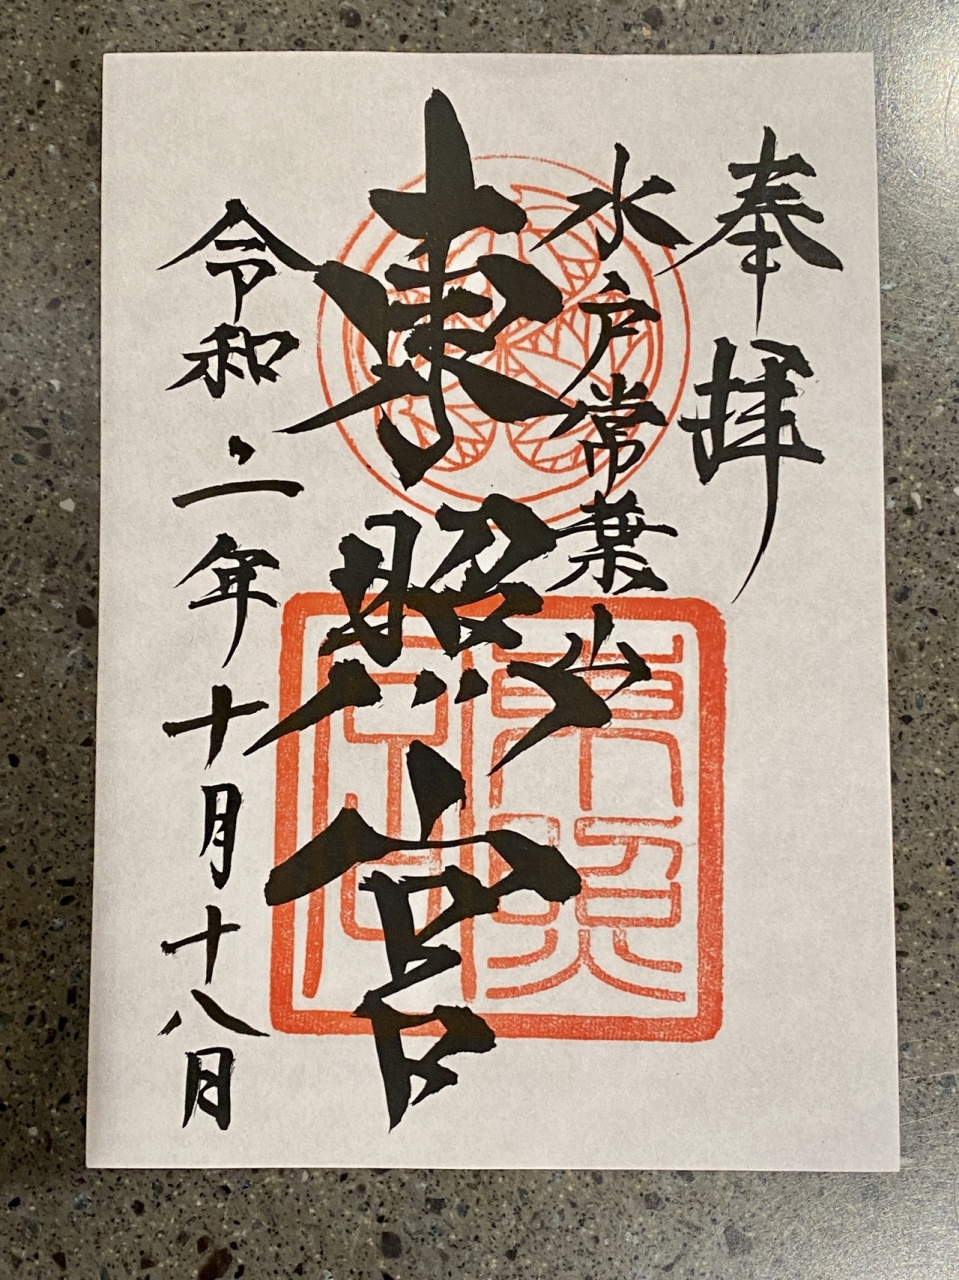 奉拝
水戸常葉山
東照宮
令和二年十月十八日
東照宮